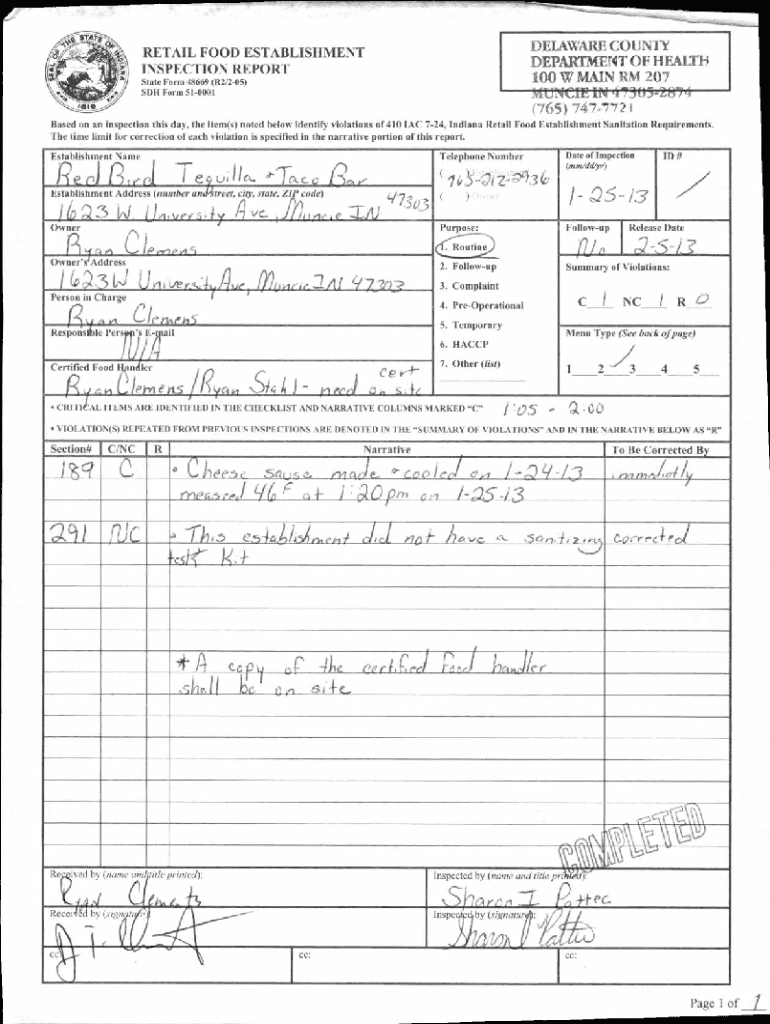 SEAL OF THE STATE OF INDIANA
1816
RETAIL FOOD ESTABLISHMENT
INSPECTION REPORT
State Form 48669 (R2/2-05)
SDH Form 51-0001
DELAWARE COUNTY
DEPARTMENT OF HEALTH
100 W MAIN RM 207
MUNCIE IN 47305-2874
(765) 747-7721
Based on an inspection this day, the item(s) noted below identify violations of 410 IAC 7-24, Indiana Retail Food Establishment Sanitation Requirements.
The time limit for correction of each violation is specified in the narrative portion of this report.
Establishment Name
Red Bird Tequilla + Taco Bar
Telephone Number
765-212-2936
Date of Inspection
(mm/dd/yr)
1-25-13
ID #
Establishment Address (number and street, city, state, ZIP code)
1623 W. University Ave, Muncie IN 47303
Owner
Ryan Clemens
Purpose:
1. Routine
2. Follow-up
3. Complaint
4. Pre-Operational
5. Temporary
6. HACCP
7. Other (list)
Follow-up
No
Release Date
2-5-13
Owner's Address
1623 W University Ave, Muncie IN 47303
Summary of Violations:
C 1 NC 1 R 0
Person in Charge
Ryan Clemens
Responsible Person's E-mail
N/A
Menu Type (See back of page)
1 2 3 4 5
Certified Food Handler
Ryan Clemens/Ryan Stahl - need cert on site
• CRITICAL ITEMS ARE IDENTIFIED IN THE CHECKLIST AND NARRATIVE COLUMNS MARKED "C"
1:05 - 2:00
• VIOLATION(S) REPEATED FROM PREVIOUS INSPECTIONS ARE DENOTED IN THE "SUMMARY OF VIOLATIONS" AND IN THE NARRATIVE BELOW AS "R"
Section# C/NC R Narrative To Be Corrected By
189 C • Cheese sause made + cooled on 1-24-13 immediatly
measred 46 F at 1:20 pm on 1-25-13
291 NC • This establishment did not have a sanitizing corrected
test Kit
* A copy of the certified food handler
shall be on site
COMPLETED
Received by (name and title printed):
Ryan Clements
Inspected by (name and title printed):
Sharon I Pattec
Received by (signature):
Inspected by (signature):
cc:
cc:
cc:
Page 1 of 1